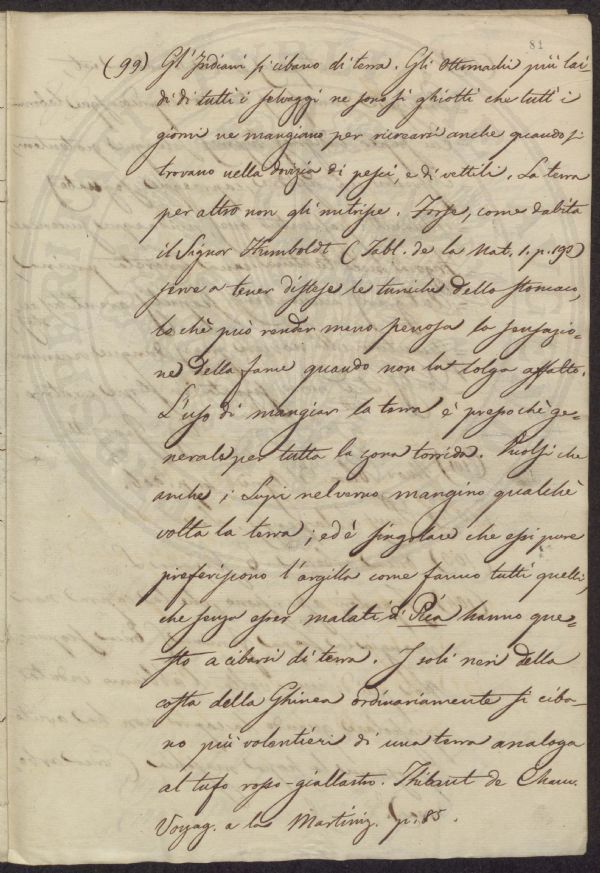 81
(99) Gl'Indiani si cibano di terra. Gli Ottomachi più lai-
di di tutti i selvaggi ne sono sì ghiotti che tutt'i
giorni ne mangiano per ricrearsi anche quando si
trovano nella dovizia di pesci, e di rettili. La terra
per altro non gli nutrisce. Forse, come dubita
il Signor Humboldt (Tabl. de la Nat. 1. p. 192)
serve a tener distese le tuniche dello stomaco,
lochè può render meno penosa la sensazio-
ne della fame quando non la tolga affatto.
L'uso di mangiar la terra è pressochè ge-
nerale per tutta la zona torrida. Vuolsi che
anche i Lupi nel verno mangino qualchè
volta la terra; ed è singolare che essi pure
preferiscono l'argilla come fanno tutti quelli,
che senza esser malati di Pica hanno que-
sto a cibarsi di terra. I soli neri della
costa della Ghinea ordinariamente si ciba-
no più volontieri di una terra analoga
al tufo rosso-giallastro. Thibaut de Chanv.
Voyag. a la Martiniq. p. 85.